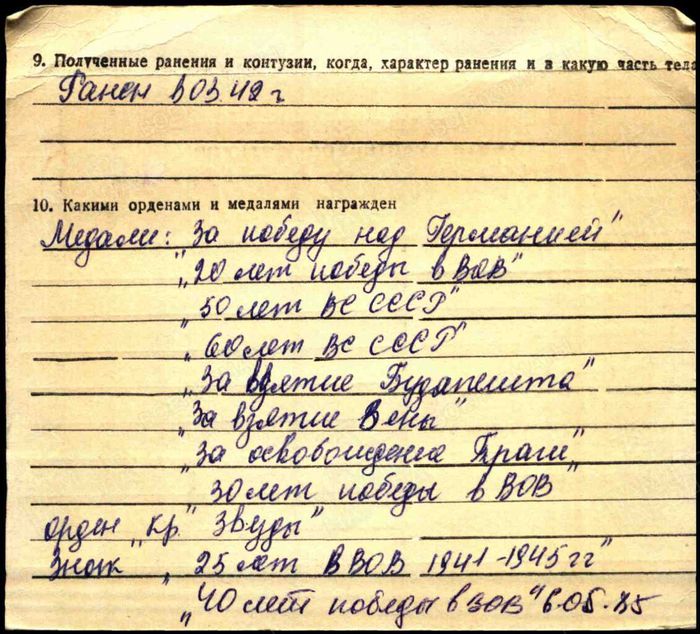 9. Полученные ранения и контузии, когда, характер ранения и в какую часть тела
Ранен в 03.42 г
10. Какими орденами и медалями награжден
Медали: "За победу над Германией"
"20 лет победы в ВОВ"
"50 лет ВС СССР"
"60 лет ВС СССР"
"За взятие Будапешта"
"За взятие Вены"
"За освобождение Праги"
30 лет победы в ВОВ"
орден "Кр. Звезды"
Знак "25 лет в ВОВ 1941-1945 гг"
"40 лет победы в ВОВ" 6.05.85